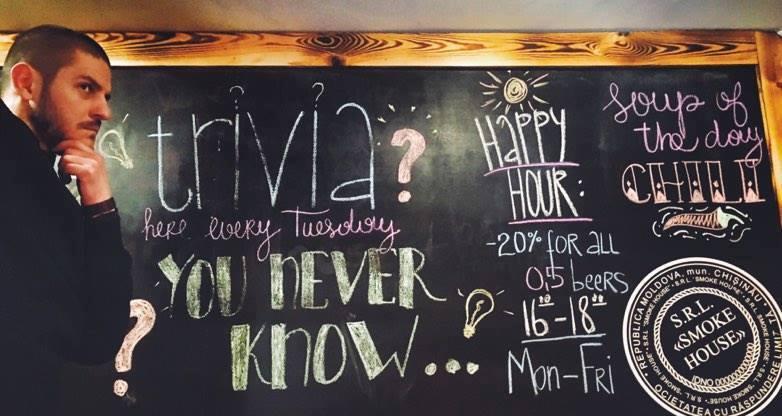 trivia?
here every Tuesday
YOU NEVER
KNOW...
?
HAPPY
HOUR:
-20% for all
0,5 beers
16⁰⁰-18⁰⁰
Mon-Fri
soup of
the day
CHILI
REPUBLICA MOLDOVA, mun. CHIȘINĂU
S.R.L. "SMOKE HOUSE" S.R.L. "SMOKE HOUSE"
S.R.L.
«SMOKE
HOUSE»